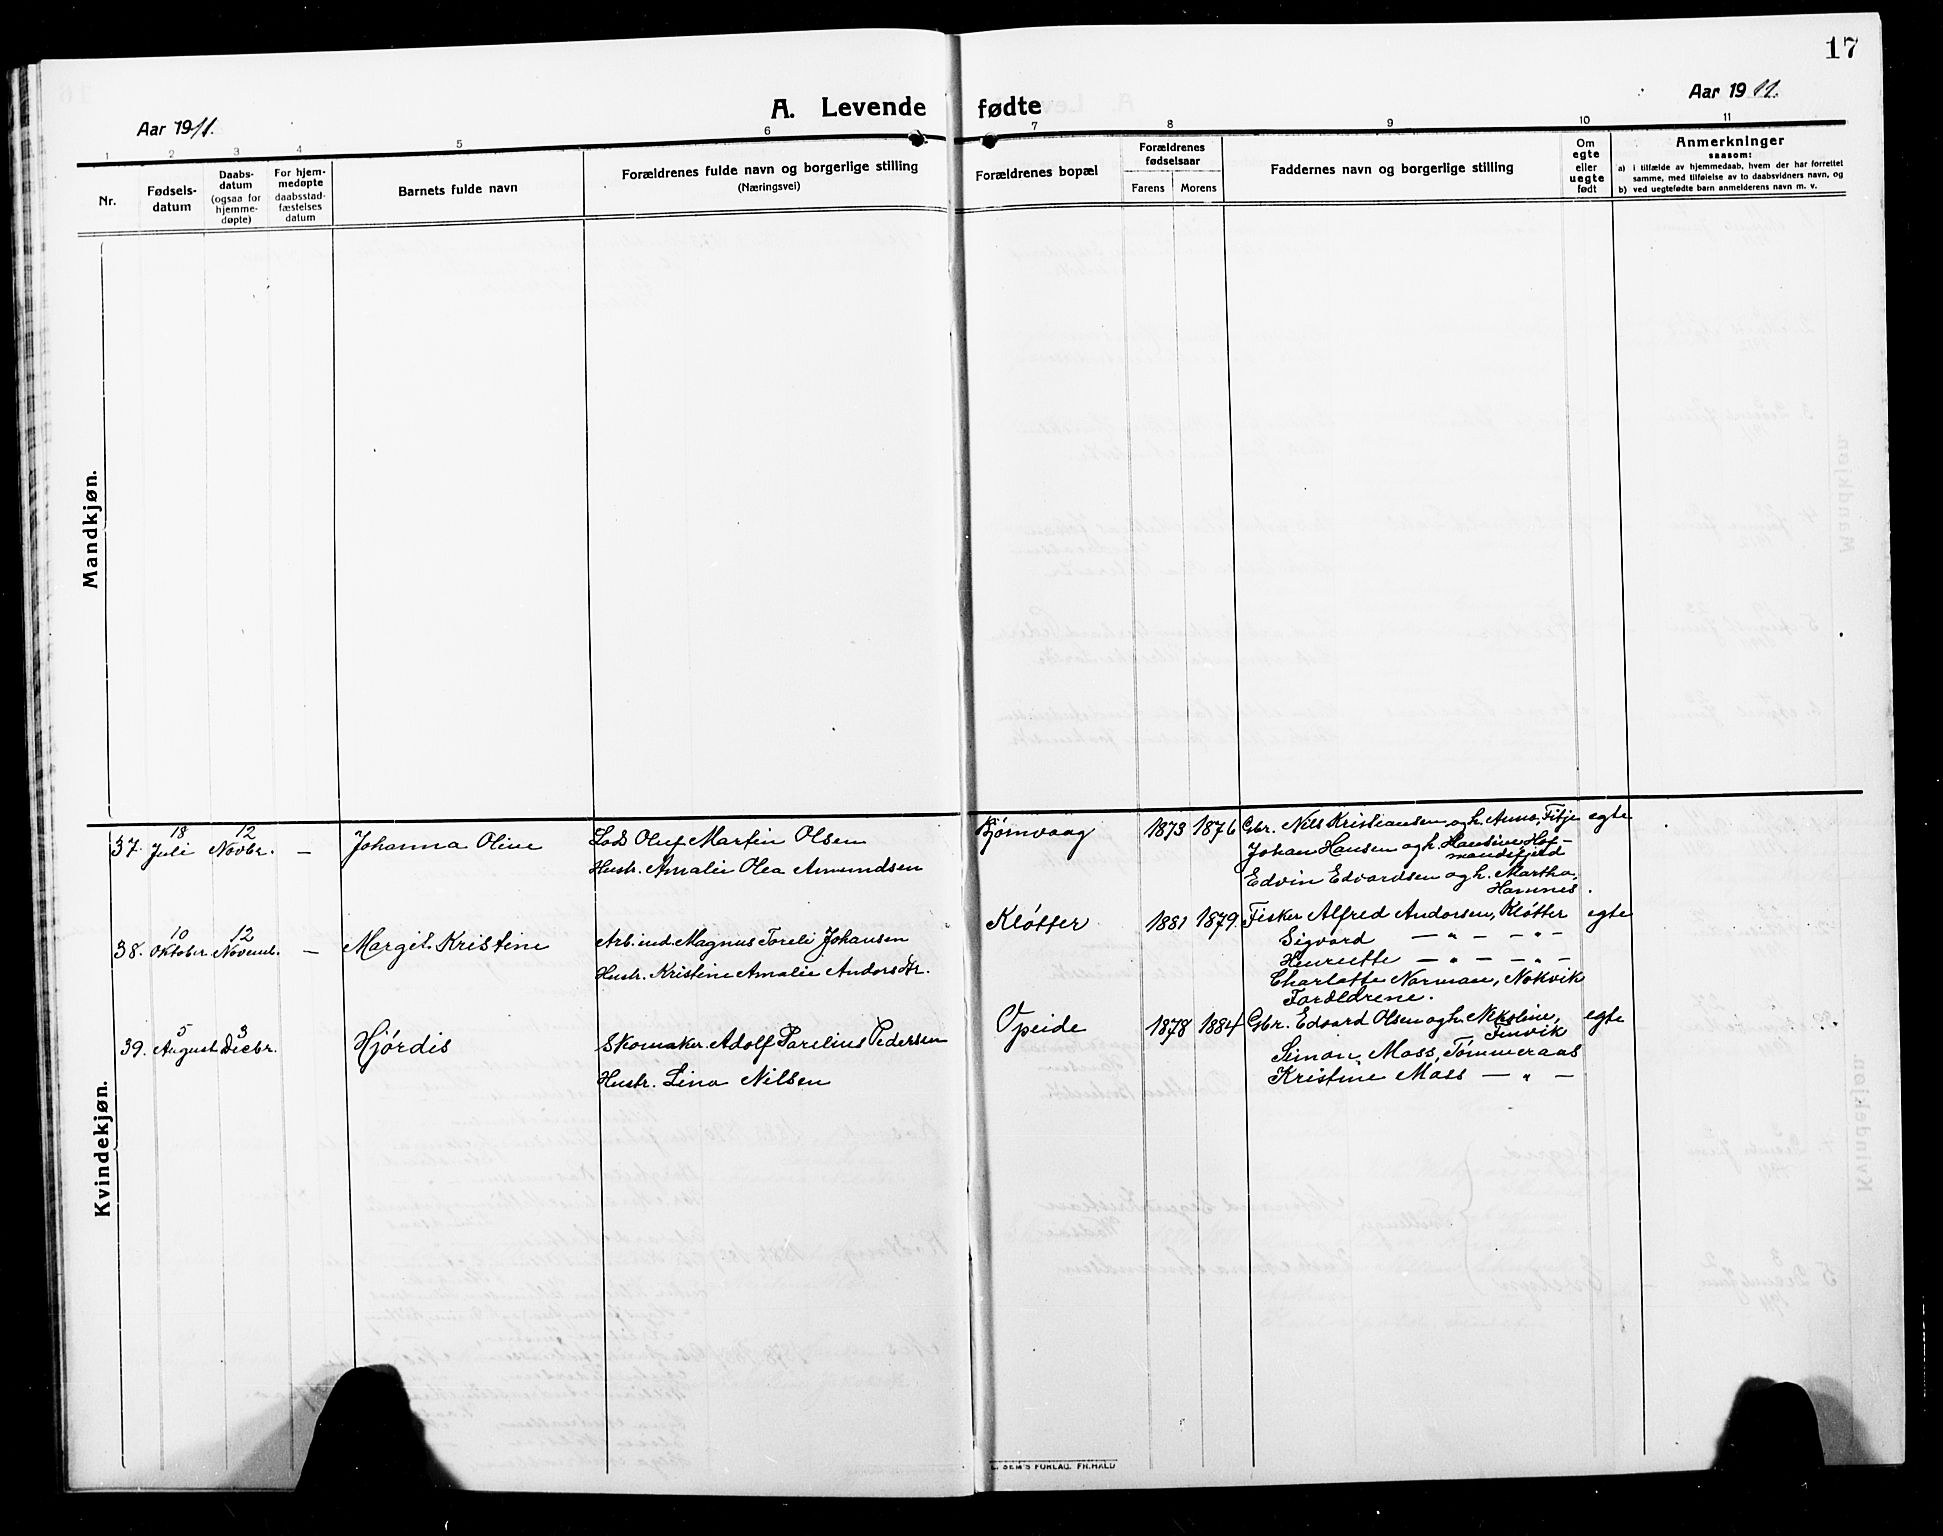 17
A. Levende fødte
Aar 1911.
Aar 1911.
1 2 3 4 5 6 7 8 9 10 11
Nr.
Fødsels-
datum
Daabs-
datum
(ogsaa for
hjemme-
døpte)
For hjem-
medøpte
daabsstad-
fæstelses
datum
Barnets fulde navn
Forældrenes fulde navn og borgerlige stilling
(Næringsvei)
Forældrenes bopæl
Forældrenes
fødselsaar
Farens Morens
Faddernes navn og borgerlige stilling
Om
egte
eller
uegte
født
Anmerkninger
saasom:
a) i tilfælde av hjemmedaab, hvem der har forrettet
samme, med tilføielse av to daabsvidners navn, og
b) ved uegtefødte barn anmelderens navn m. v.
Mandkjøn.
Kvindekjøn.
37. 18 Juli 12 Novbr. — Johanna Oline
Lods Oluf Martin Olsen
Hustr. Amalie Olea Amundsen
1873 1876
Gbr. Nils Kristiansen og h. Anna, Fitje
Johan Hansen og h. Hansine Hof-
mandsfjeld
Edvin Edvardsen og h. Martha,
Hamnes.
egte
38. 10 Oktober 12 Novemb. — Margit Kristine
Arb. ind. Magnus Toreli Johansen
Hustr. Kristine Amalie Andorsdtr.
Kløtter 1881 1879
Fisker Alfred Andorsen, Kløtter
Sigvard — " — — " —
Henriette — " — — " —
Charlotte Norman, Nokvik
Forældrene.
egte
39. 5 August 3 Decbr. Hjørdis
Skomaker Adolf Parelius Pedersen
Hustr. Lina Nilsen
Opeide 1878 1884
Gbr. Edvard Olsen og h. Nikoline,
Finvik
Simon Moss, Tømmeraas
Kristine Moss — " —
egte
E. SEM'S FORLAG. FR.HALD